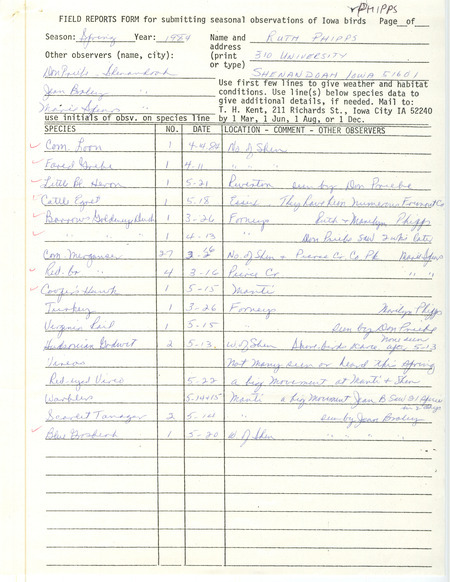 PHIPPS
FIELD REPORTS FORM for submitting seasonal observations of Iowa birds Page of
Season: Spring Year: 1984 Name and RUTH PHIPPS
Other observers (name, city): address 310 UNIVERSITY
(print
or type) SHENANDOAH IOWA 51601
Don Priebe - Shenandoah
Jean Braley "
Use first few lines to give weather and habitat
conditions. Use line(s) below species data to
give additional details, if needed. Mail to:
T. H. Kent, 211 Richards St., Iowa City IA 52240
use initials of obsv. on species line by 1 Mar, 1 Jun, 1 Aug, or 1 Dec.
SPECIES NO. DATE LOCATION - COMMENT - OTHER OBSERVERS
Com. Loon 1 4-4-84 No. of Shen
Eared Grebe 1 4-11 " " "
Little Bl. Heron 1 5-21 Riverton seen by Don Priebe
Cattle Egret 1 5-18 Essex They have been numerous
Barrow's Goldeneye Duck 1 3-26 Forneys Ruth & Marilyn Phipps
" " 1 4-13 Don Priebe saw 2 wks later
Com. Merganser 27 No. of Shen & Pierce Cr. Co. Pk.
Red-br " 4 3-16 Pierce Cr " "
Cooper's Hawk 1 5-15 Manti
Turkey 1 3-26 Forneys Marilyn Phipps
Virginia Rail 1 5-15 " seen by Don Priebe
Hudsonian Godwit 2 5-13 W. of Shen Shore birds rare after 5-13
none seen
Vireos Not many seen or heard this spring
Red-eyed Vireo 5-22 a big movement at Manti & Shen
Warblers 5-14&15 Manti a big movement Jean B saw 21 species
in 2 days
Scarlet Tanager 2 5-14 " seen by Jean Braley
Blue Grosbeak 1 5-20 W. of Shen " " "